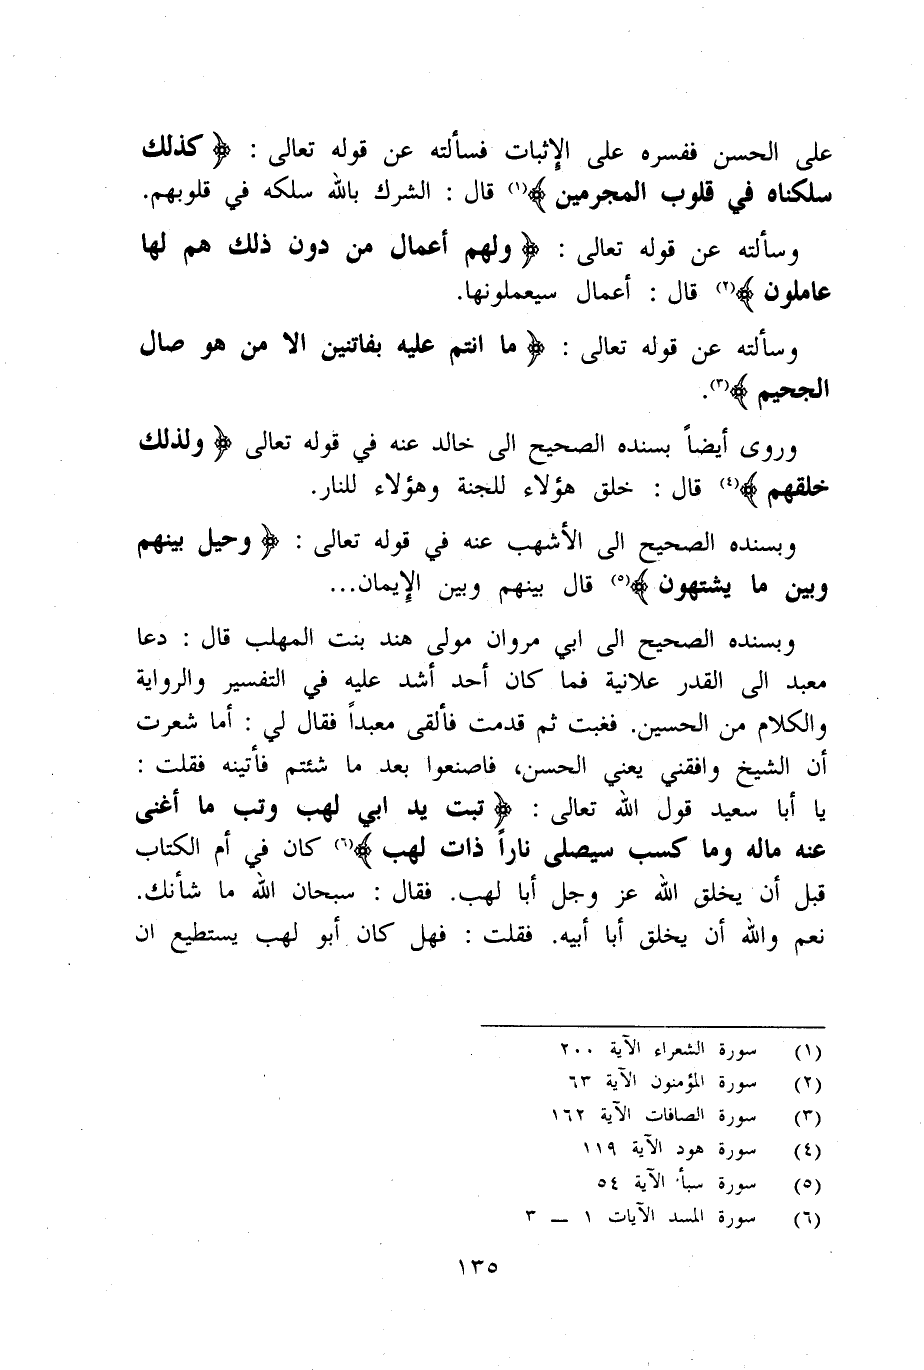 على الحسن ففسره على الإثبات فسألته عن قوله تعالى : ﴿ كذلك
سلكناه في قلوب المجرمين ﴾(١) قال : الشرك بالله سلكه في قلوبهم.
وسألته عن قوله تعالى : ﴿ ولهم أعمال من دون ذلك هم لها
عاملون ﴾(٢) قال : أعمال سيعملونها.
وسألته عن قوله تعالى : ﴿ ما انتم عليه بفاتنين الا من هو صال
الجحيم ﴾(٣).
وروى أيضاً بسنده الصحيح الى خالد عنه في قوله تعالى ﴿ ولذلك
خلقهم ﴾(٤) قال : خلق هؤلاء للجنة وهؤلاء للنار.
وبسنده الصحيح الى الأشهب عنه في قوله تعالى : ﴿ وحيل بينهم
وبين ما يشتهون ﴾(٥) قال بينهم وبين الإيمان...
وبسنده الصحيح الى ابي مروان مولى هند بنت المهلب قال : دعا
معبد الى القدر علانية فما كان أحد أشد عليه في التفسير والرواية
والكلام من الحسين. فغبت ثم قدمت فألقى معبداً فقال لي : أما شعرت
أن الشيخ وافقني يعني الحسن، فاصنعوا بعد ما شئتم فأتينه فقلت :
يا أبا سعيد قول الله تعالى : ﴿ تبت يد ابي لهب وتب ما أغنى
عنه ماله وما كسب سيصلى ناراً ذات لهب ﴾(٦) كان في أم الكتاب
قبل أن يخلق الله عز وجل أبا لهب. فقال : سبحان الله ما شأنك.
نعم والله أن يخلق أبا أبيه. فقلت : فهل كان أبو لهب يستطيع ان
(١) سورة الشعراء الآية ٢٠٠
(٢) سورة المؤمنون الآية ٦٣
(٣) سورة الصافات الآية ١٦٢
(٤) سورة هود الآية ١١٩
(٥) سورة سبأ الآية ٥٤
(٦) سورة المسد الآيات ١ ــ ٣
١٣٥